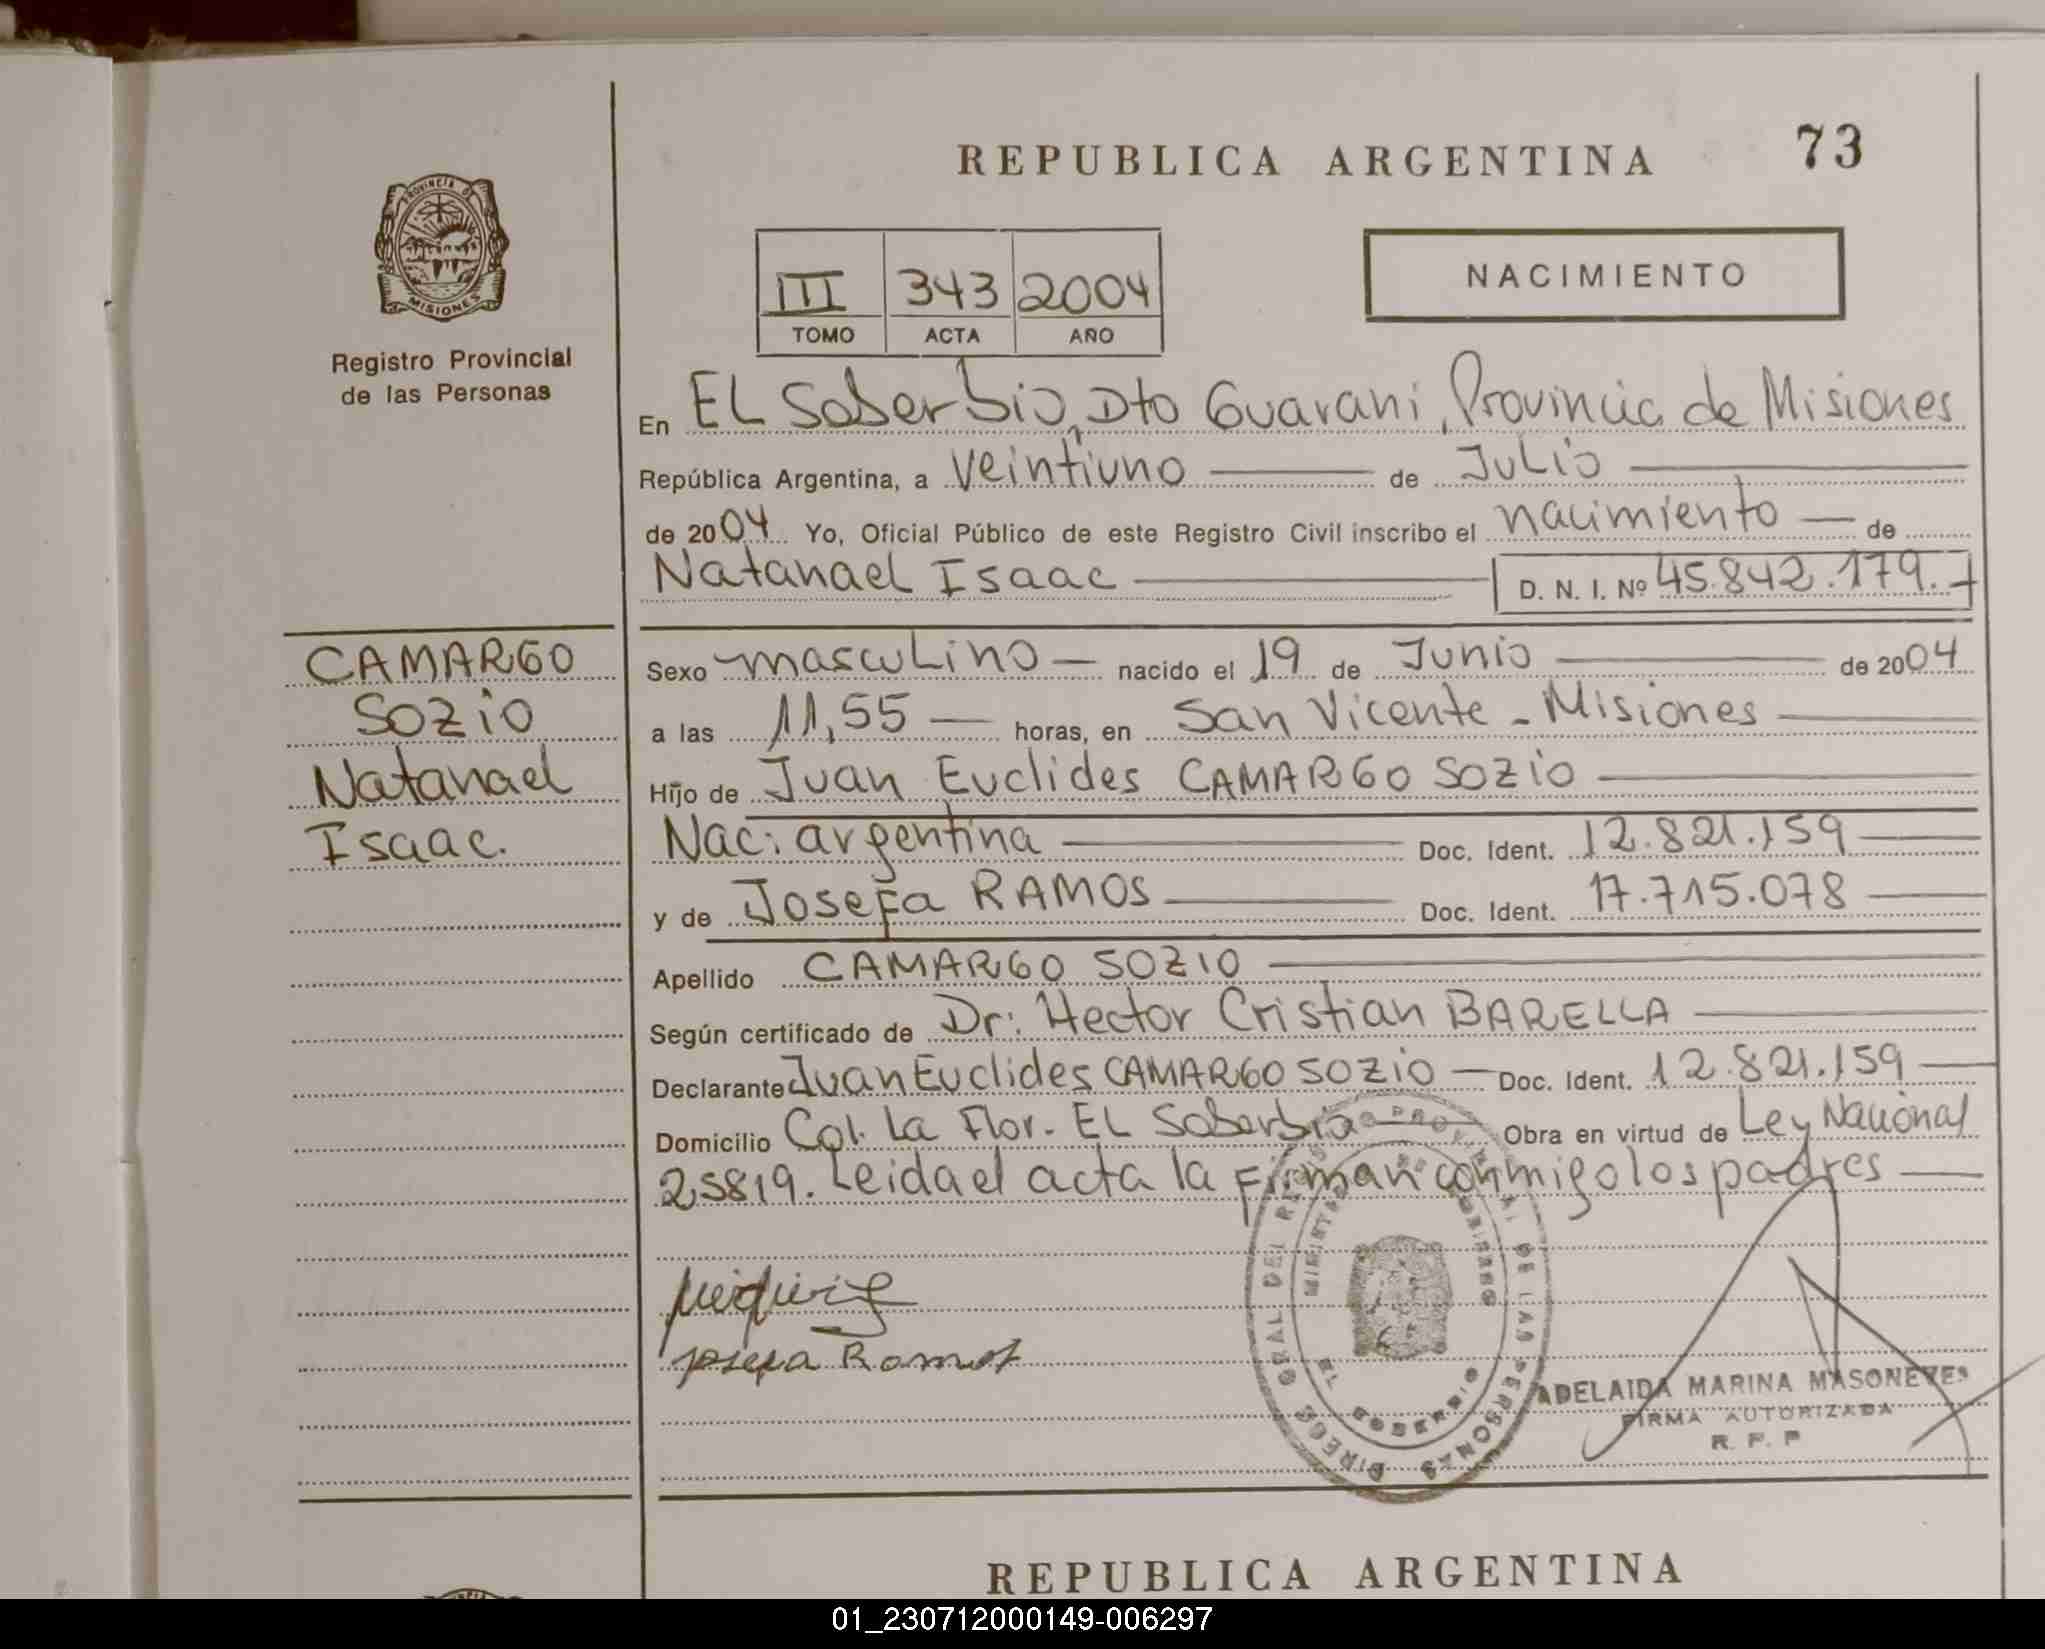 REPUBLICA ARGENTINA 73
PROVINCIA DE
MISIONES
Registro Provincial
de las Personas
NACIMIENTO
III 343 2004
TOMO ACTA AÑO
En EL Soberbio, Dto Guarani, Provincia de Misiones
República Argentina, a Veintiuno de Julio
de 2004 Yo, Oficial Público de este Registro Civil inscribo el nacimiento de
Natanael Isaac D. N. I. Nº 45.842.179.
CAMARGO
SOZIO
Natanael
Isaac.
Sexo masculino nacido el 19 de Junio de 2004
a las 11,55 horas, en San Vicente - Misiones
Hijo de Juan Euclides CAMARGO SOZIO
Nac: argentina Doc. Ident. 12.821.159
y de Josefa RAMOS Doc. Ident. 17.715.078
Apellido CAMARGO SOZIO
Según certificado de Dr: Hector Cristian BARELLA
Declarante Juan Euclides CAMARGO SOZIO Doc. Ident. 12.821.159
Domicilio Col. La Flor. EL Soberbio Obra en virtud de Ley Nacional
25819. Leida el acta la firman conmigo los padres
Josefa Ramos
DIREC. GRAL DEL REG. PROVINCIAL DE LAS PERSONAS
EL SOBERBIO
ADELAIDA MARINA MASONEVES
FIRMA AUTORIZADA
R. P. P
REPUBLICA ARGENTINA
01_230712000149-006297